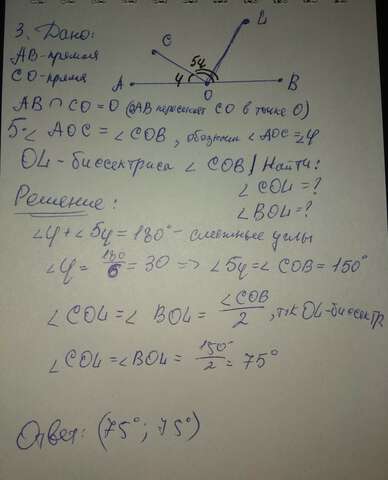 3. Дано:
АВ-прямая
СО-прямая
C
L
5φ
φ
A
O
B
АВ ∩ СО = О (АВ пересекает СО в точке О)
5·∠AOC = ∠COB, обозначим ∠AOC = ∠φ
OL - биссектриса ∠COB / Найти:
∠COL = ?
∠BOL = ?
Решение:
∠φ + ∠5φ = 180° - смежные углы
∠φ = 180/6 = 30 => ∠5φ = ∠COB = 150°
∠COL = ∠BOL = ∠COB/2, т.к OL-биссектр.
∠COL = ∠BOL = 150°/2 = 75°
Ответ: (75°; 75°)